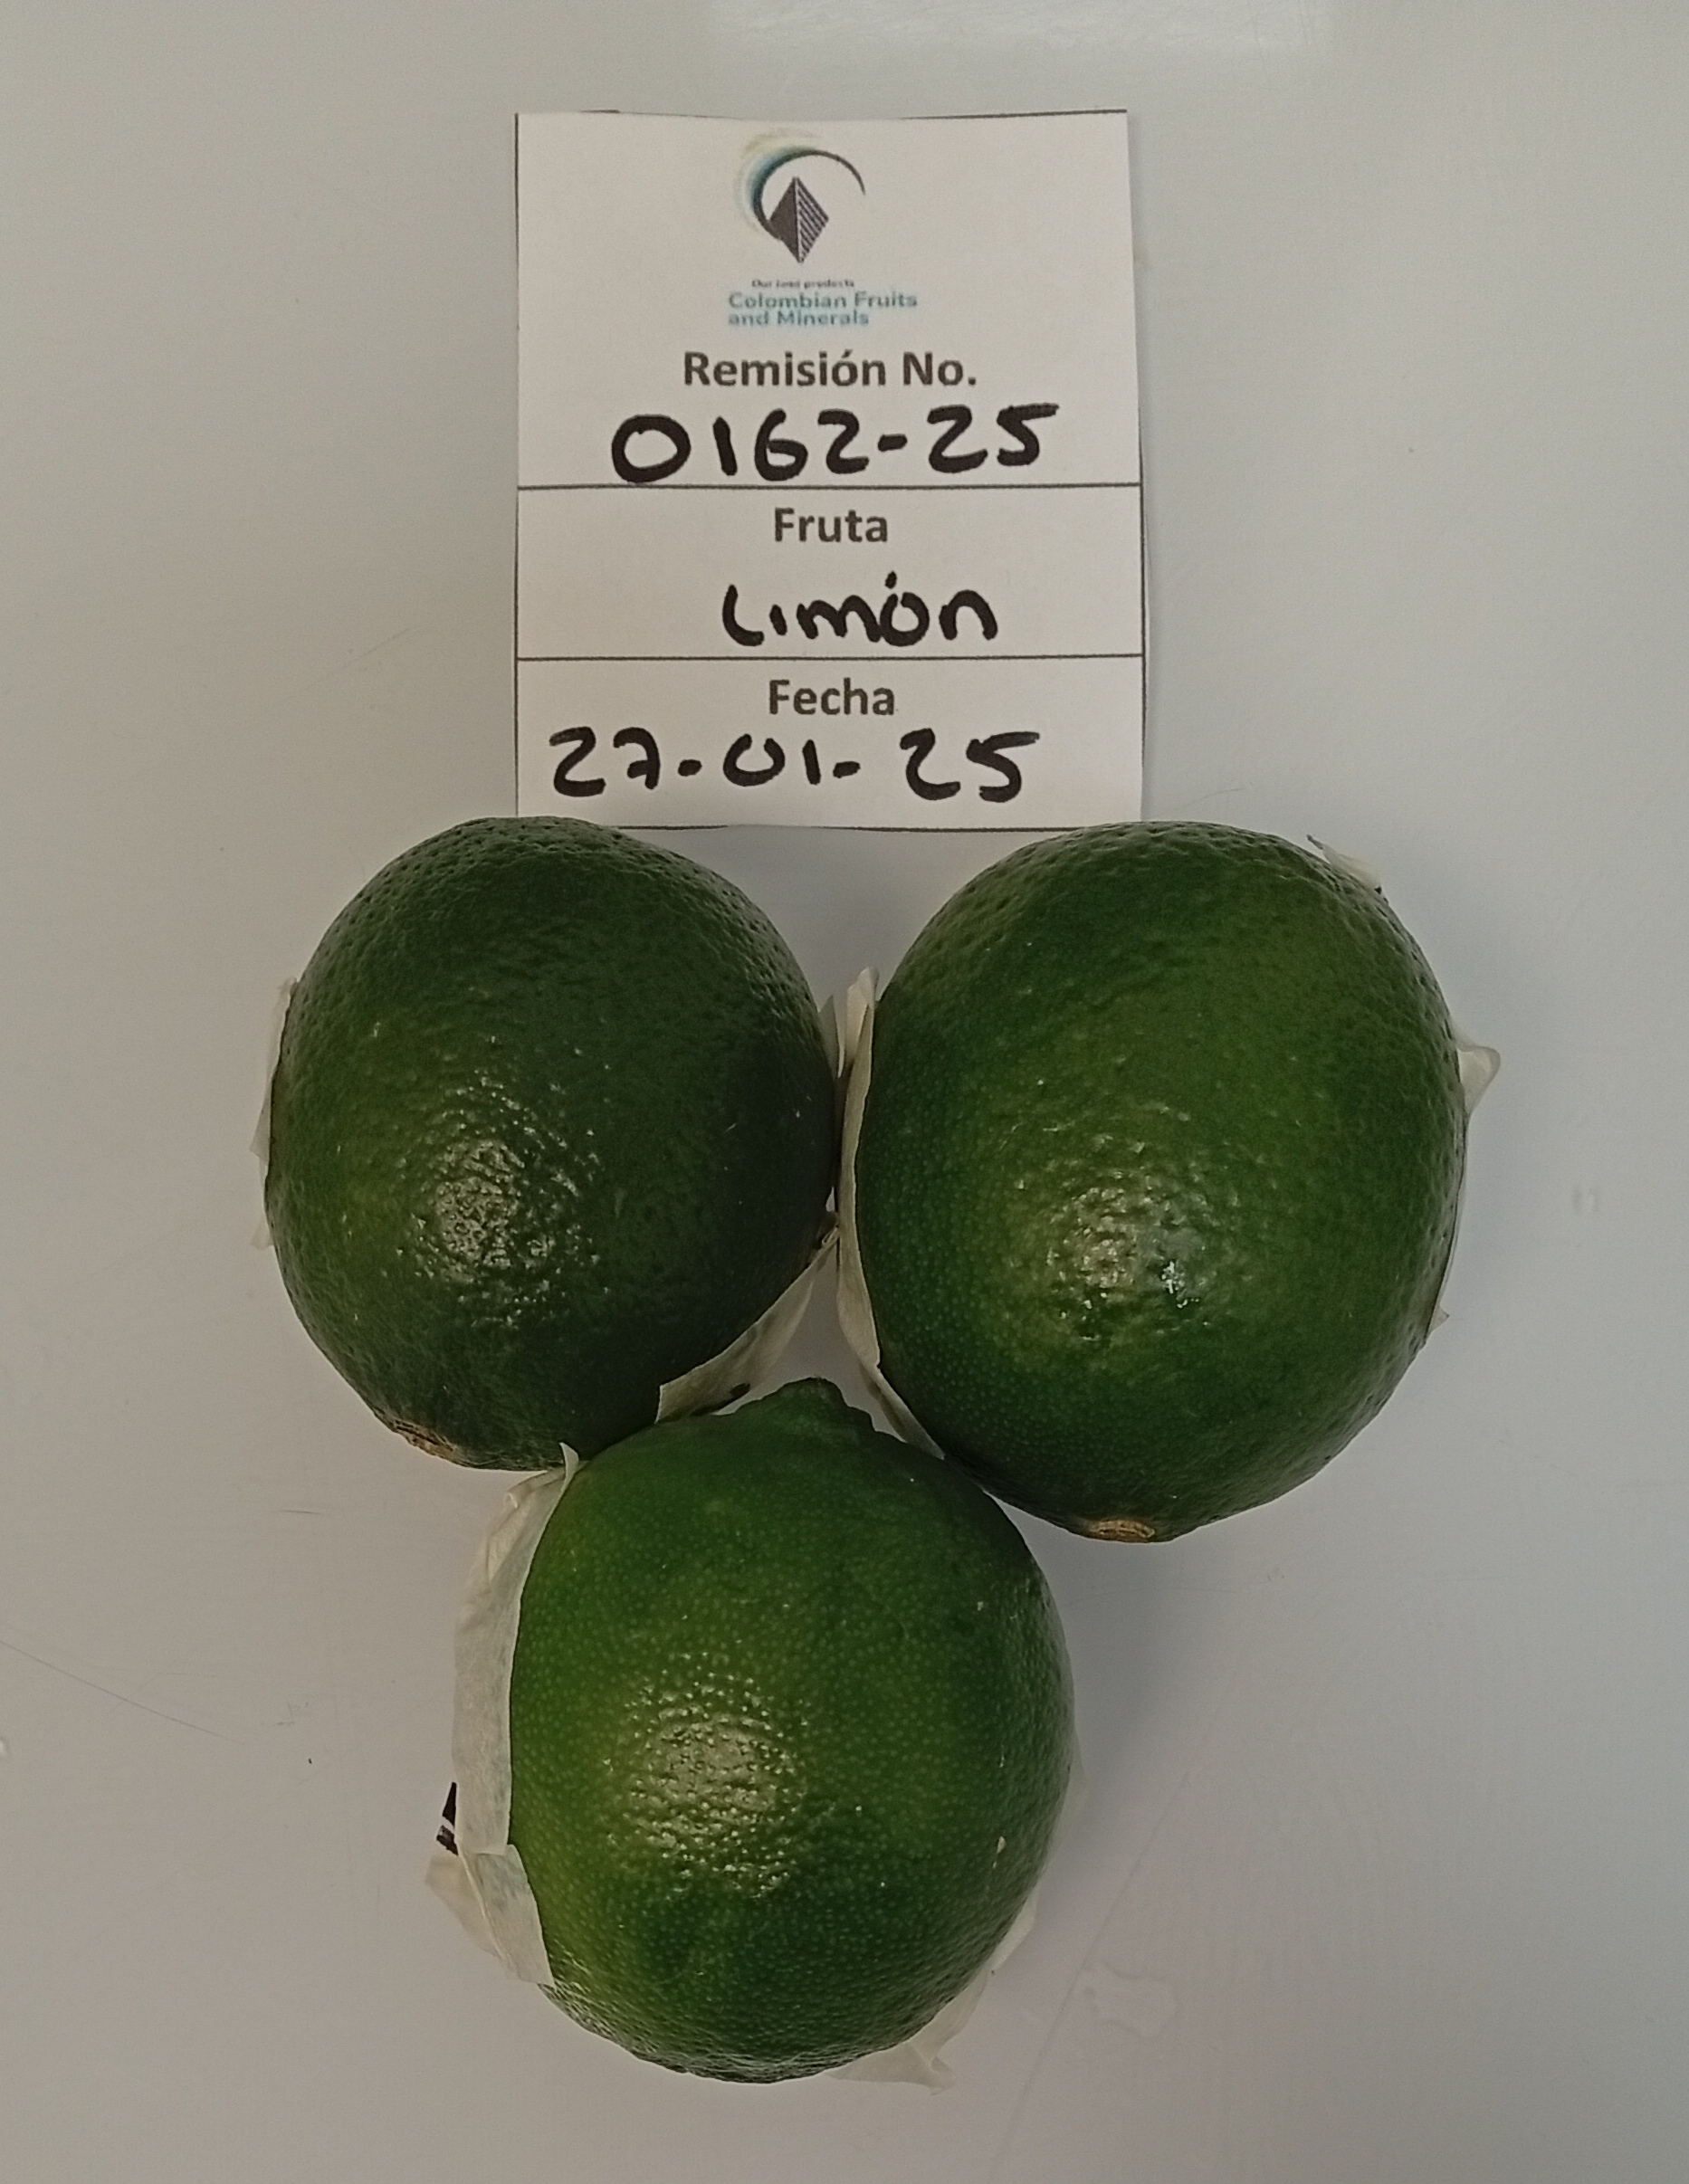 Our land products
Colombian Fruits
and Minerals
Remisión No.
0162-25
Fruta
Limón
Fecha
27-01-25